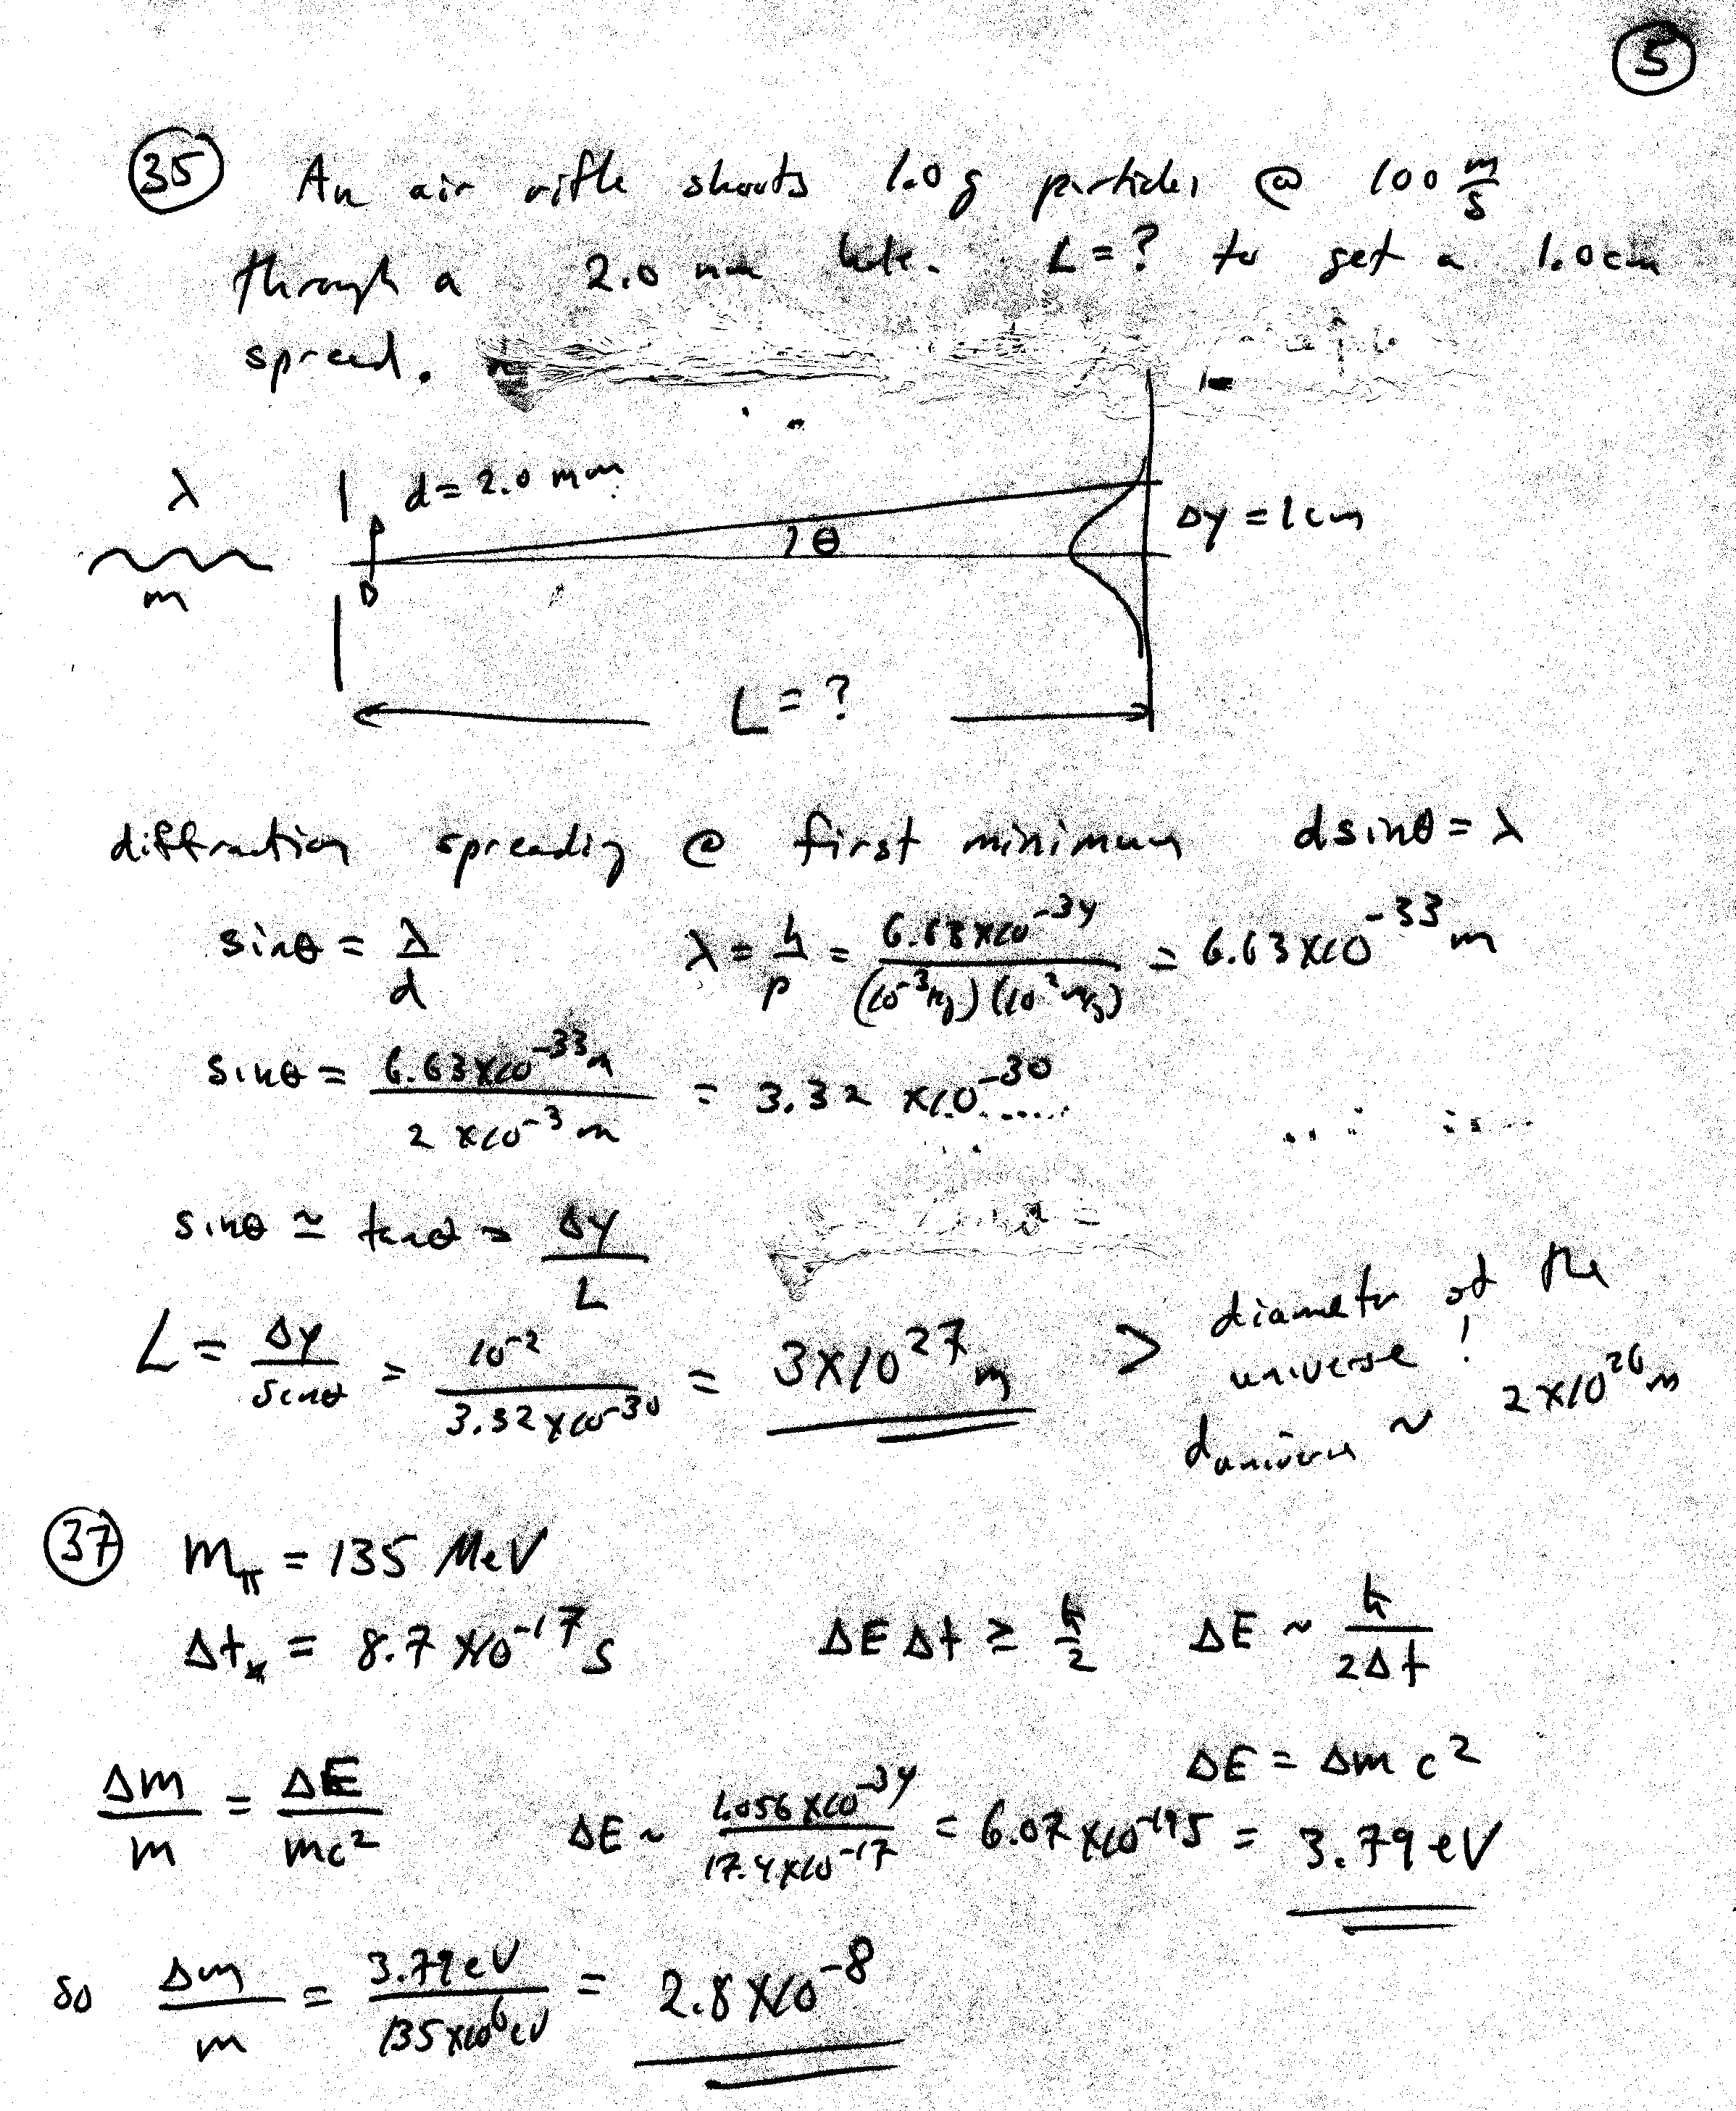 5
35 An air rifle shoots 1.0 g particles @ 100 m/s
through a 2.0 mm hole. L = ? to get a 1.0 cm
spread.
λ d = 2.0 mm
θ Δy = 1cm
m
L = ?
diffraction spreading @ first minimum d sinθ = λ
sinθ = λ/d λ = h/p = 6.63×10^-34/(10^-3 kg)(10^2 m/s) = 6.63×10^-33 m
sinθ = 6.63×10^-33 m/2×10^-3 m = 3.32×10^-30
sinθ ≃ tanθ = Δy/L
L = Δy/sinθ = 10^-2/3.32×10^-30 = 3×10^27 m > diameter of the
universe!
d universe ~ 2×10^26 m
37 m_π = 135 MeV
Δt = 8.7×10^-17 s ΔE Δt ≥ ħ/2 ΔE ~ ħ/2Δt
ΔE = Δm c^2
Δm/m = ΔE/mc^2 ΔE ~ 1.056×10^-34/17.4×10^-17 = 6.07×10^-19 J = 3.79 eV
so Δm/m = 3.79 eV/135×10^6 eV = 2.8×10^-8